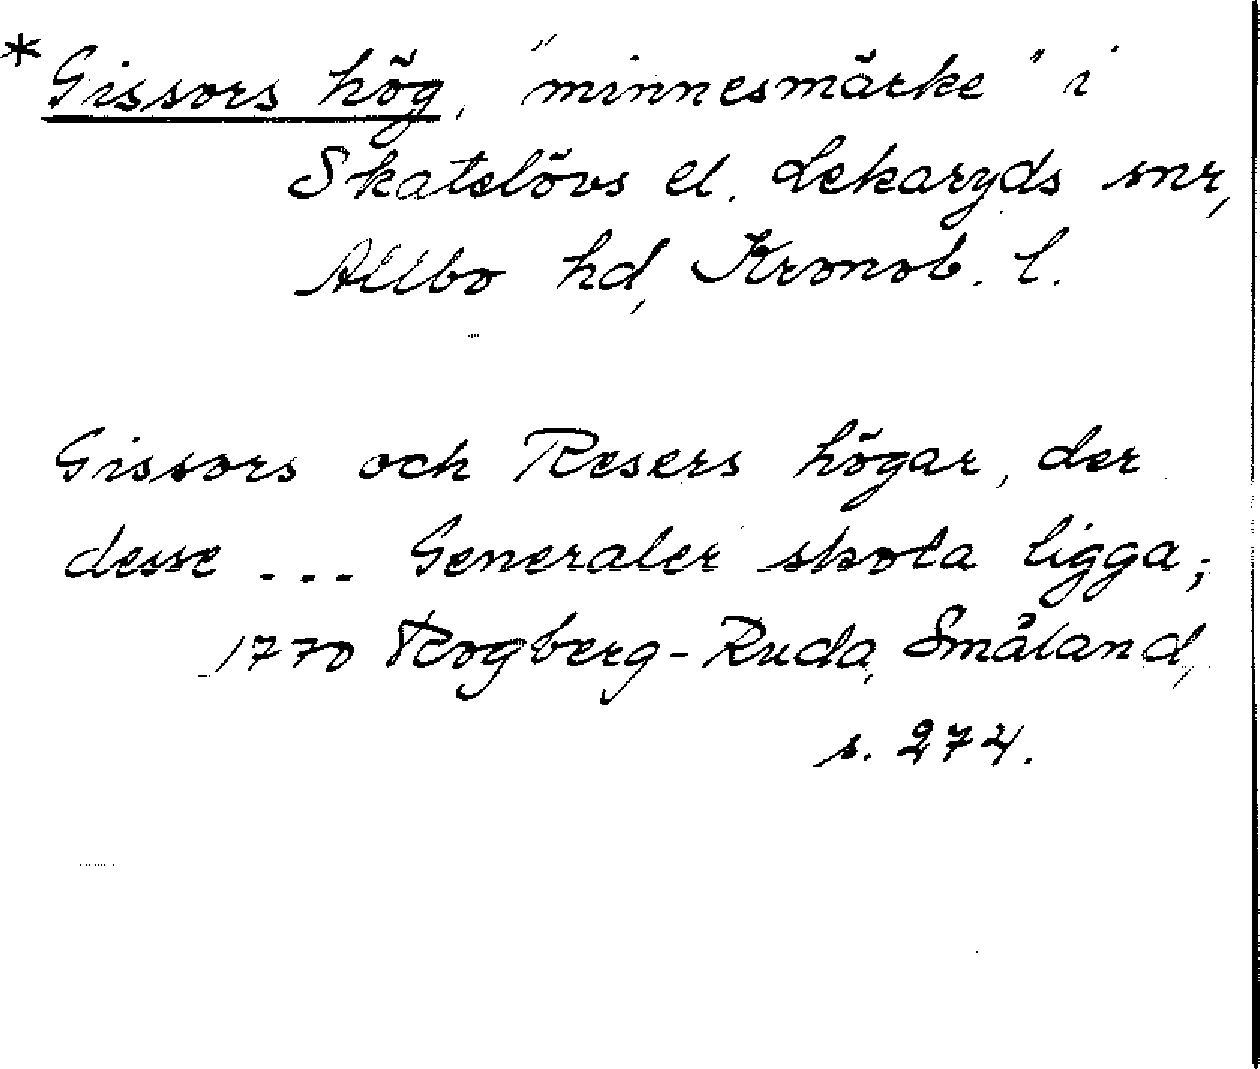 *Gissors hög, "minnesmärke" i
Skatelövs el. Lekaryds snr,
Allbo hd, Kronob. l.
Gissors och Resers högar, der
desse ... Generaler skola ligga;
1770 Rogberg-Ruda, Småland,
s. 274.